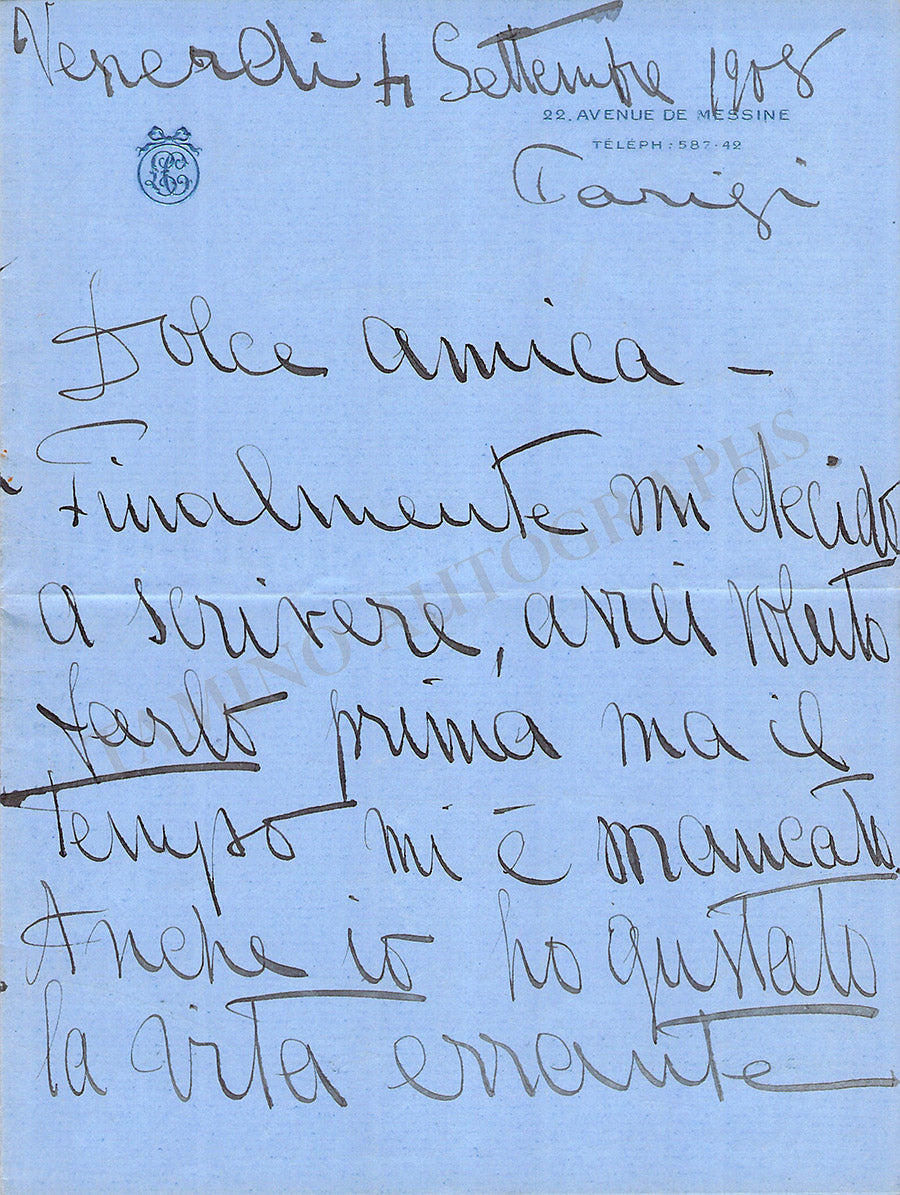 Venerdi 4 Settembre 1908
22, AVENUE DE MESSINE
TÉLÉPH : 587·42
Parigi
Dolce amica –
Finalmente mi decido
a scrivere, avrei voluto
farlo prima ma il
tempo mi è mancato.
Anche io ho gustato
la vita errante
TAMINO AUTOGRAPHS